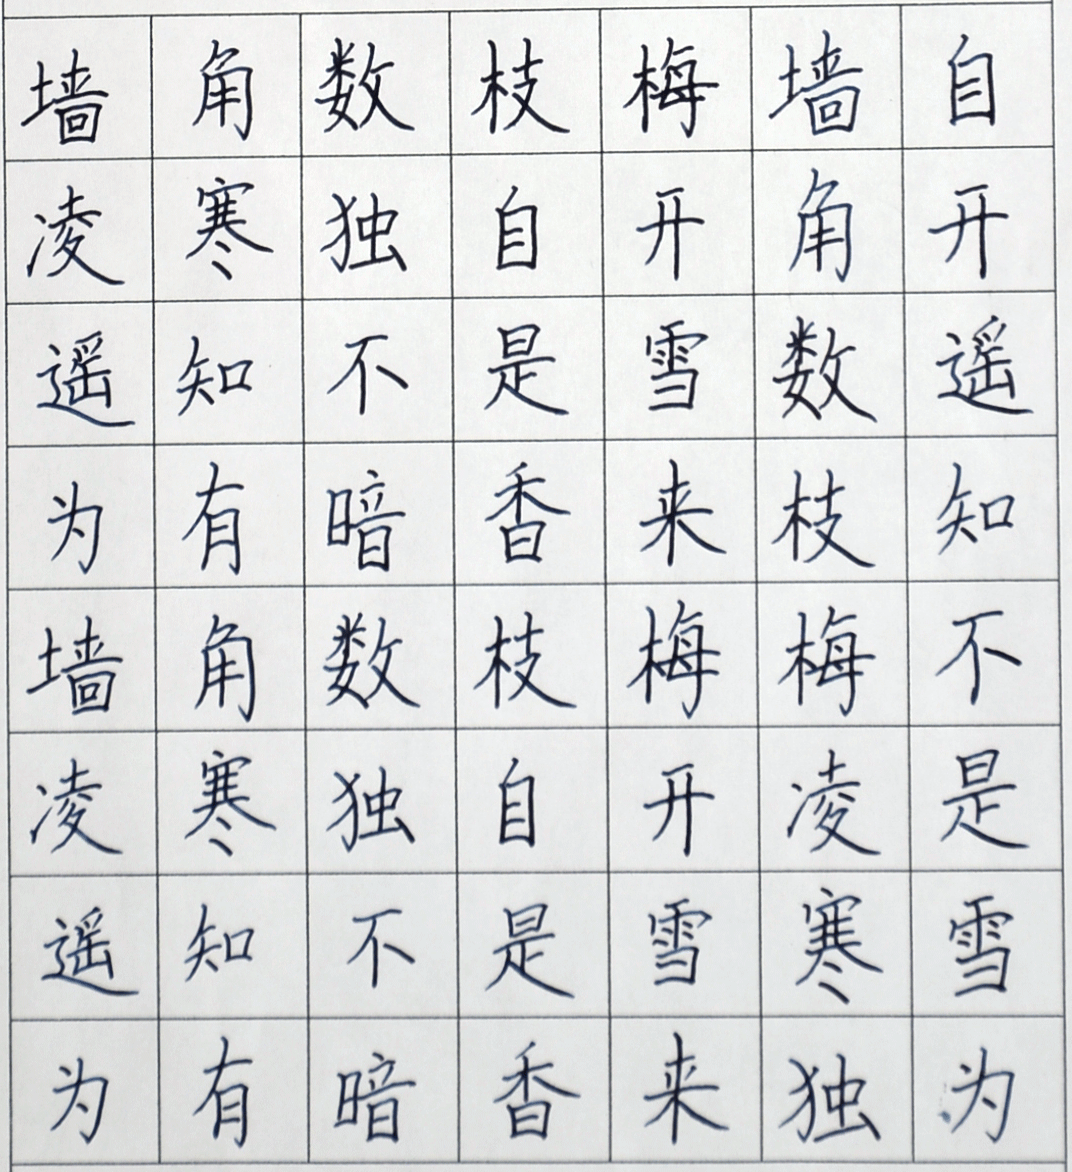 墙角数枝梅墙自
凌寒独自开角开
遥知不是雪数遥
为有暗香来枝知
墙角数枝梅梅不
凌寒独自开凌是
遥知不是雪寒雪
为有暗香来独为